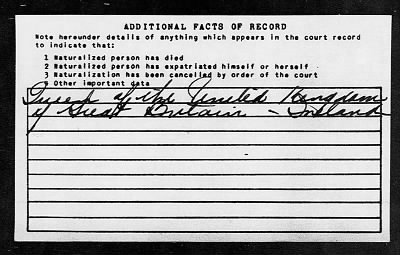 ADDITIONAL FACTS OF RECORD
Note hereunder details of anything which appears in the court record
to indicate that:
1 Naturalized person has died
2 Naturalized person has expatriated himself or herself
3 Naturalization has been cancelled by order of the court
Other important data
Queen of the United Kingdom
of Great Britain - Ireland